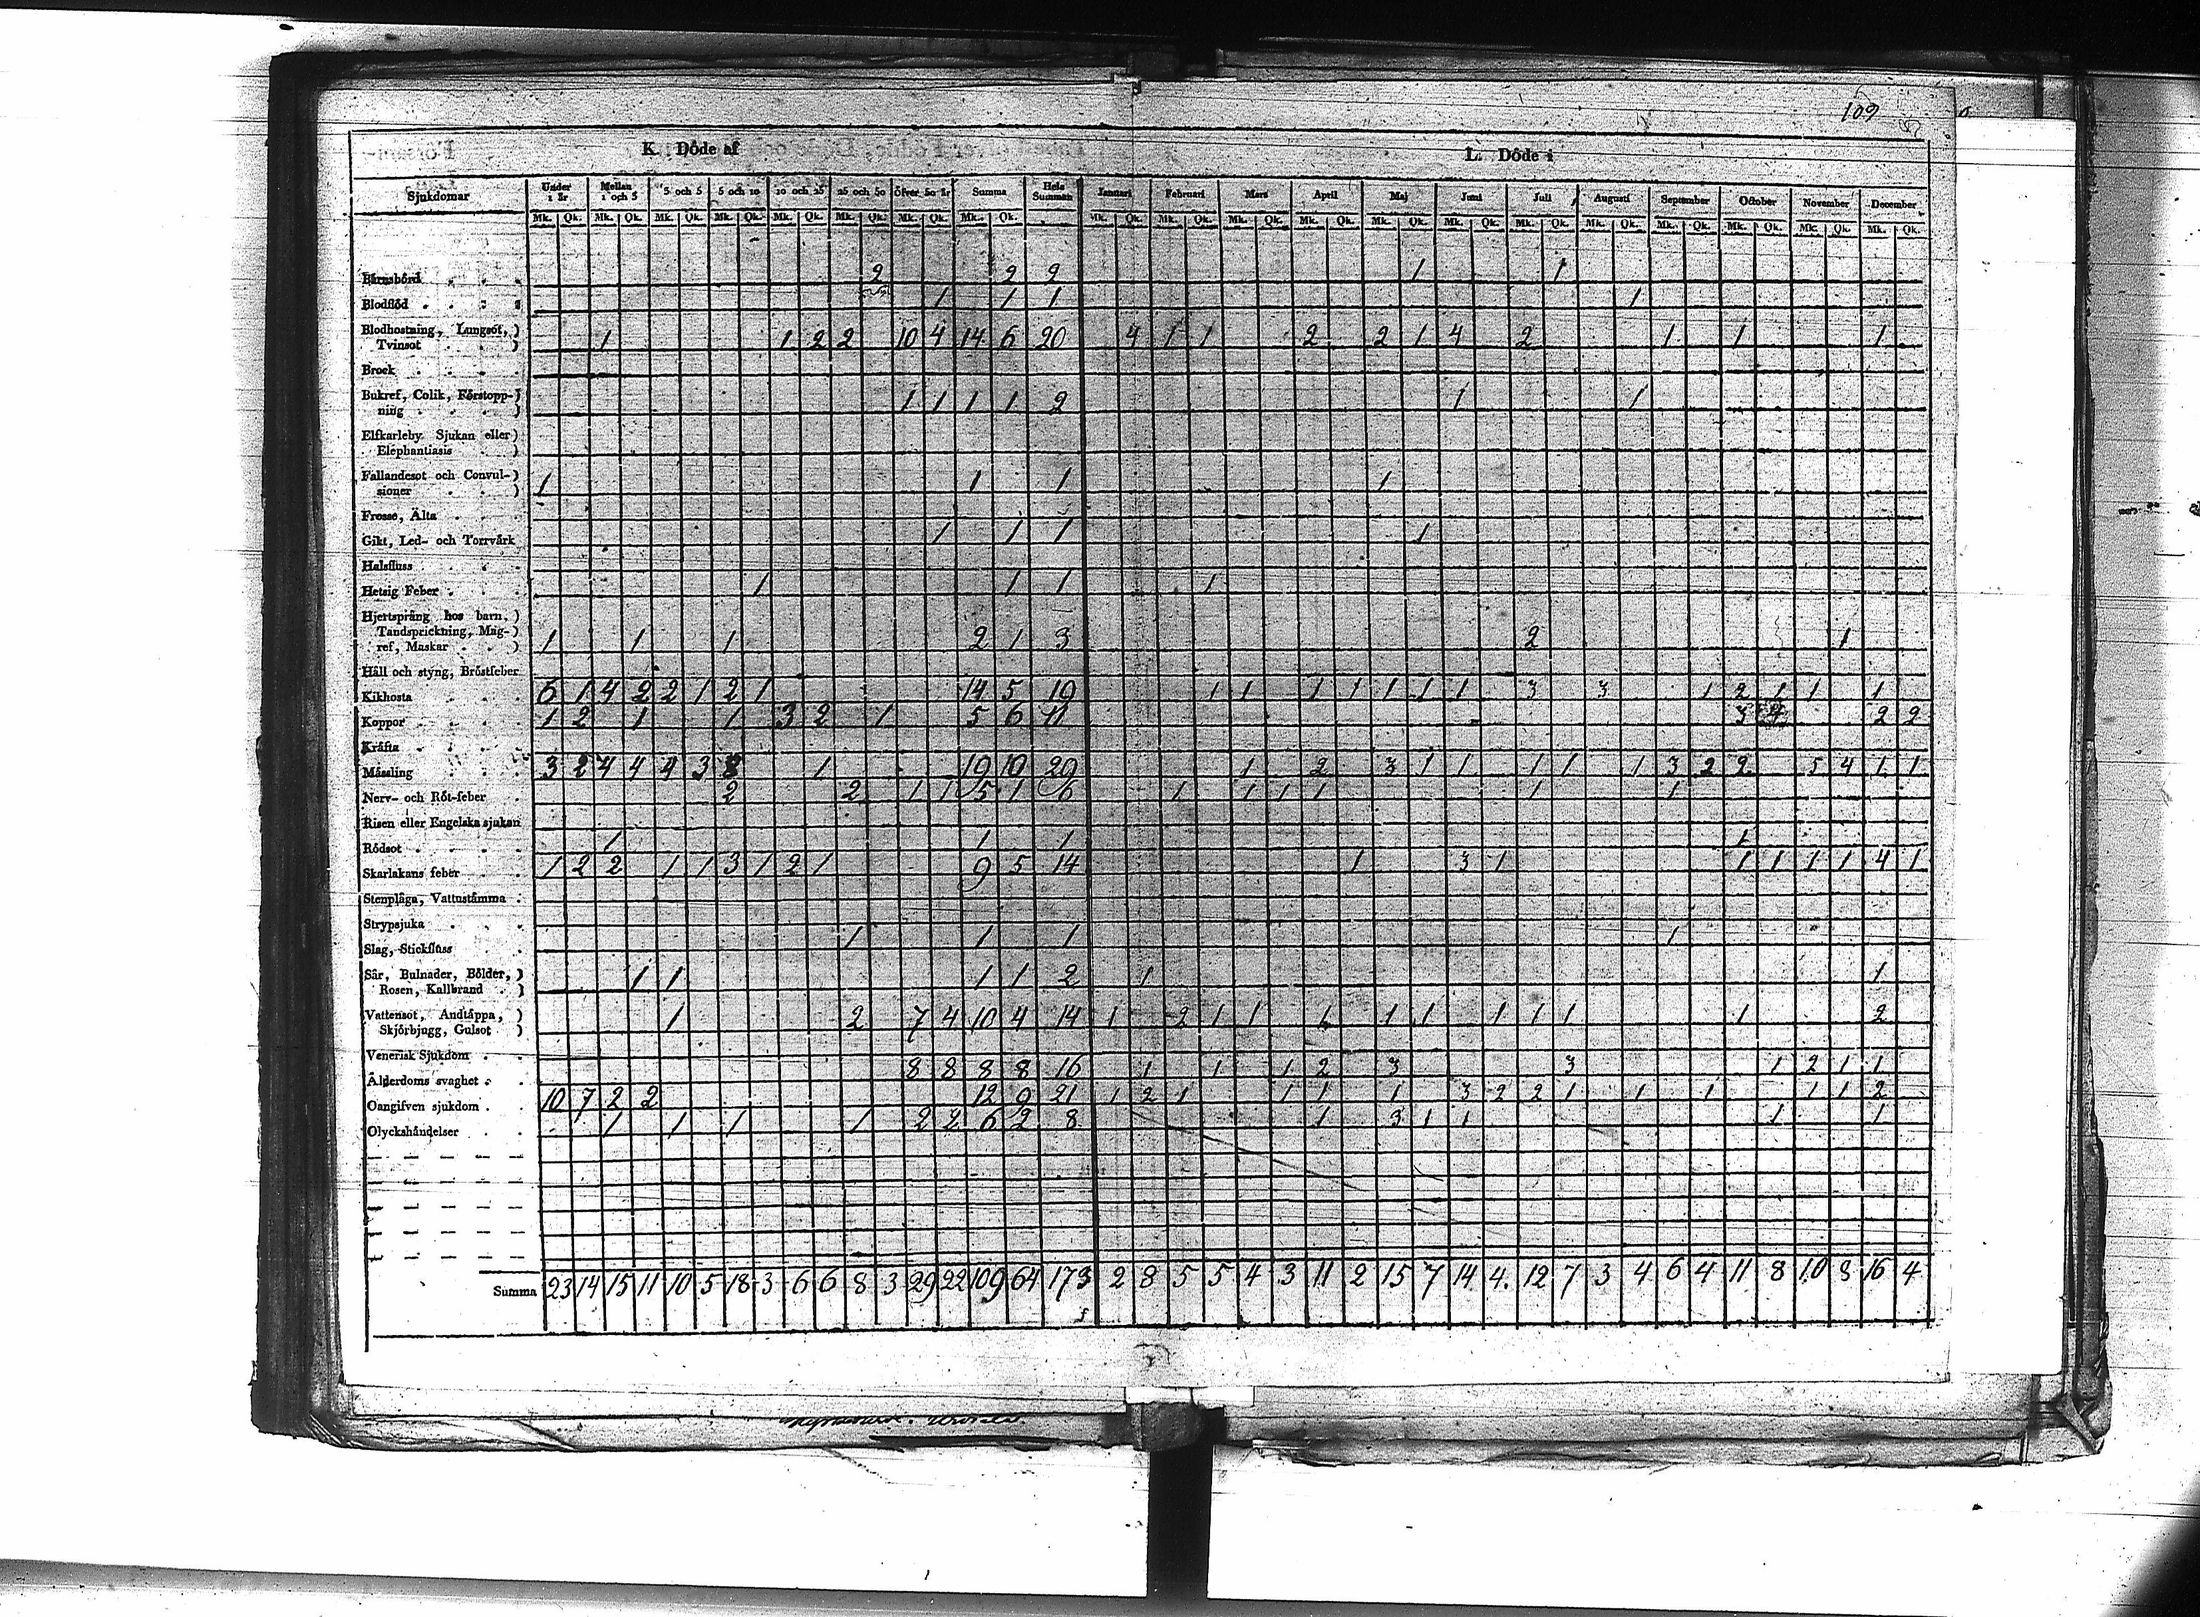 109
K. Döde af L. Döde i
Sjukdomar Under 1 år Mellan 1 och 3 3 och 5 5 och 10 10 och 25 25 och 50 Öfver 50 år Summa Hela Summan Januari Februari Mars April Maj Juni Juli Augusti September October November December
Mk. Qk. Mk. Qk. Mk. Qk. Mk. Qk. Mk. Qk. Mk. Qk. Mk. Qk. Mk. Qk. Mk. Qk. Mk. Qk. Mk. Qk. Mk. Qk. Mk. Qk. Mk. Qk. Mk. Qk. Mk. Qk. Mk. Qk. Mk. Qk. Mk. Qk. Mk. Qk.
Barnsbörd 2 2 2 1 1
Blodflöd 1 1 1 1
Blodhostning, Lungsot,
Tvinsot 1 1 2 2 10 4 14 6 20 4 1 1 2 2 1 4 2 1 1 1
Brock
Bukref, Colik, Förstopp-
ning 1 1 1 1 2 1 1
Elfkarleby Sjukan eller
Elephantiasis
Fallandesot och Convul-
sioner 1 1 1 1
Frosse, Älta
Gikt, Led- och Torrvärk 1 1 1 1
Halsfluss
Hetsig Feber 1 1 1 1
Hjertsprång hos barn,
Tandsprickning, Mag-
ref, Maskar 1 1 1 2 1 3 2 1
Håll och styng, Bröstfeber
Kikhosta 6 1 4 2 2 1 2 1 14 5 19 1 1 1 1 1 1 1 3 3 1 2 1 1 1
Koppor 1 2 1 1 3 2 1 5 6 11 3 4 2 2
Kräfta
Mässling 3 2 4 4 4 3 8 1 19 10 29 1 2 3 1 1 1 1 1 3 2 2 5 4 1 1
Nerv- och Röt-feber 2 2 1 1 5 1 6 1 1 1 1 1 1
Risen eller Engelska sjukan
Rödsot 1 1 1 1
Skarlakans feber 1 2 2 1 1 3 1 2 1 9 5 14 1 3 1 1 1 1 1 4 1
Stenplåga, Vattustämma
Strypsjuka
Slag, Stickfluss 1 1 1 1
Sår, Bulnader, Bölder,
Rosen, Kallbrand 1 1 1 1 2 1 1
Vattensot, Andtäppa,
Skjörbjugg, Gulsot 1 2 7 4 10 4 14 1 2 1 1 1 1 1 1 1 1 1 2
Venerisk Sjukdom
Ålderdoms svaghet 8 8 8 8 16 1 1 1 2 3 3 1 2 1 1
Oangifven sjukdom 10 7 2 2 12 9 21 1 2 1 1 1 1 3 2 2 1 1 1 1 1 2
Olyckshändelser 1 1 1 1 2 2 6 2 8 1 3 1 1 1 1
Summa 23 14 15 11 10 5 18 3 6 6 8 3 29 22 109 64 173 2 8 5 5 4 3 11 2 15 7 14 4 12 7 3 4 6 4 11 8 10 8 16 4